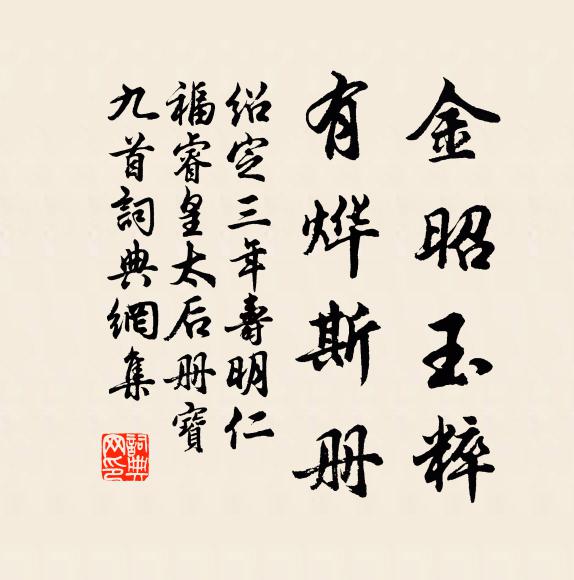 金昭玉粹
有烨斯册
绍定三年壽明仁
福睿皇太后册寶
九首詞典網集
詞典网印